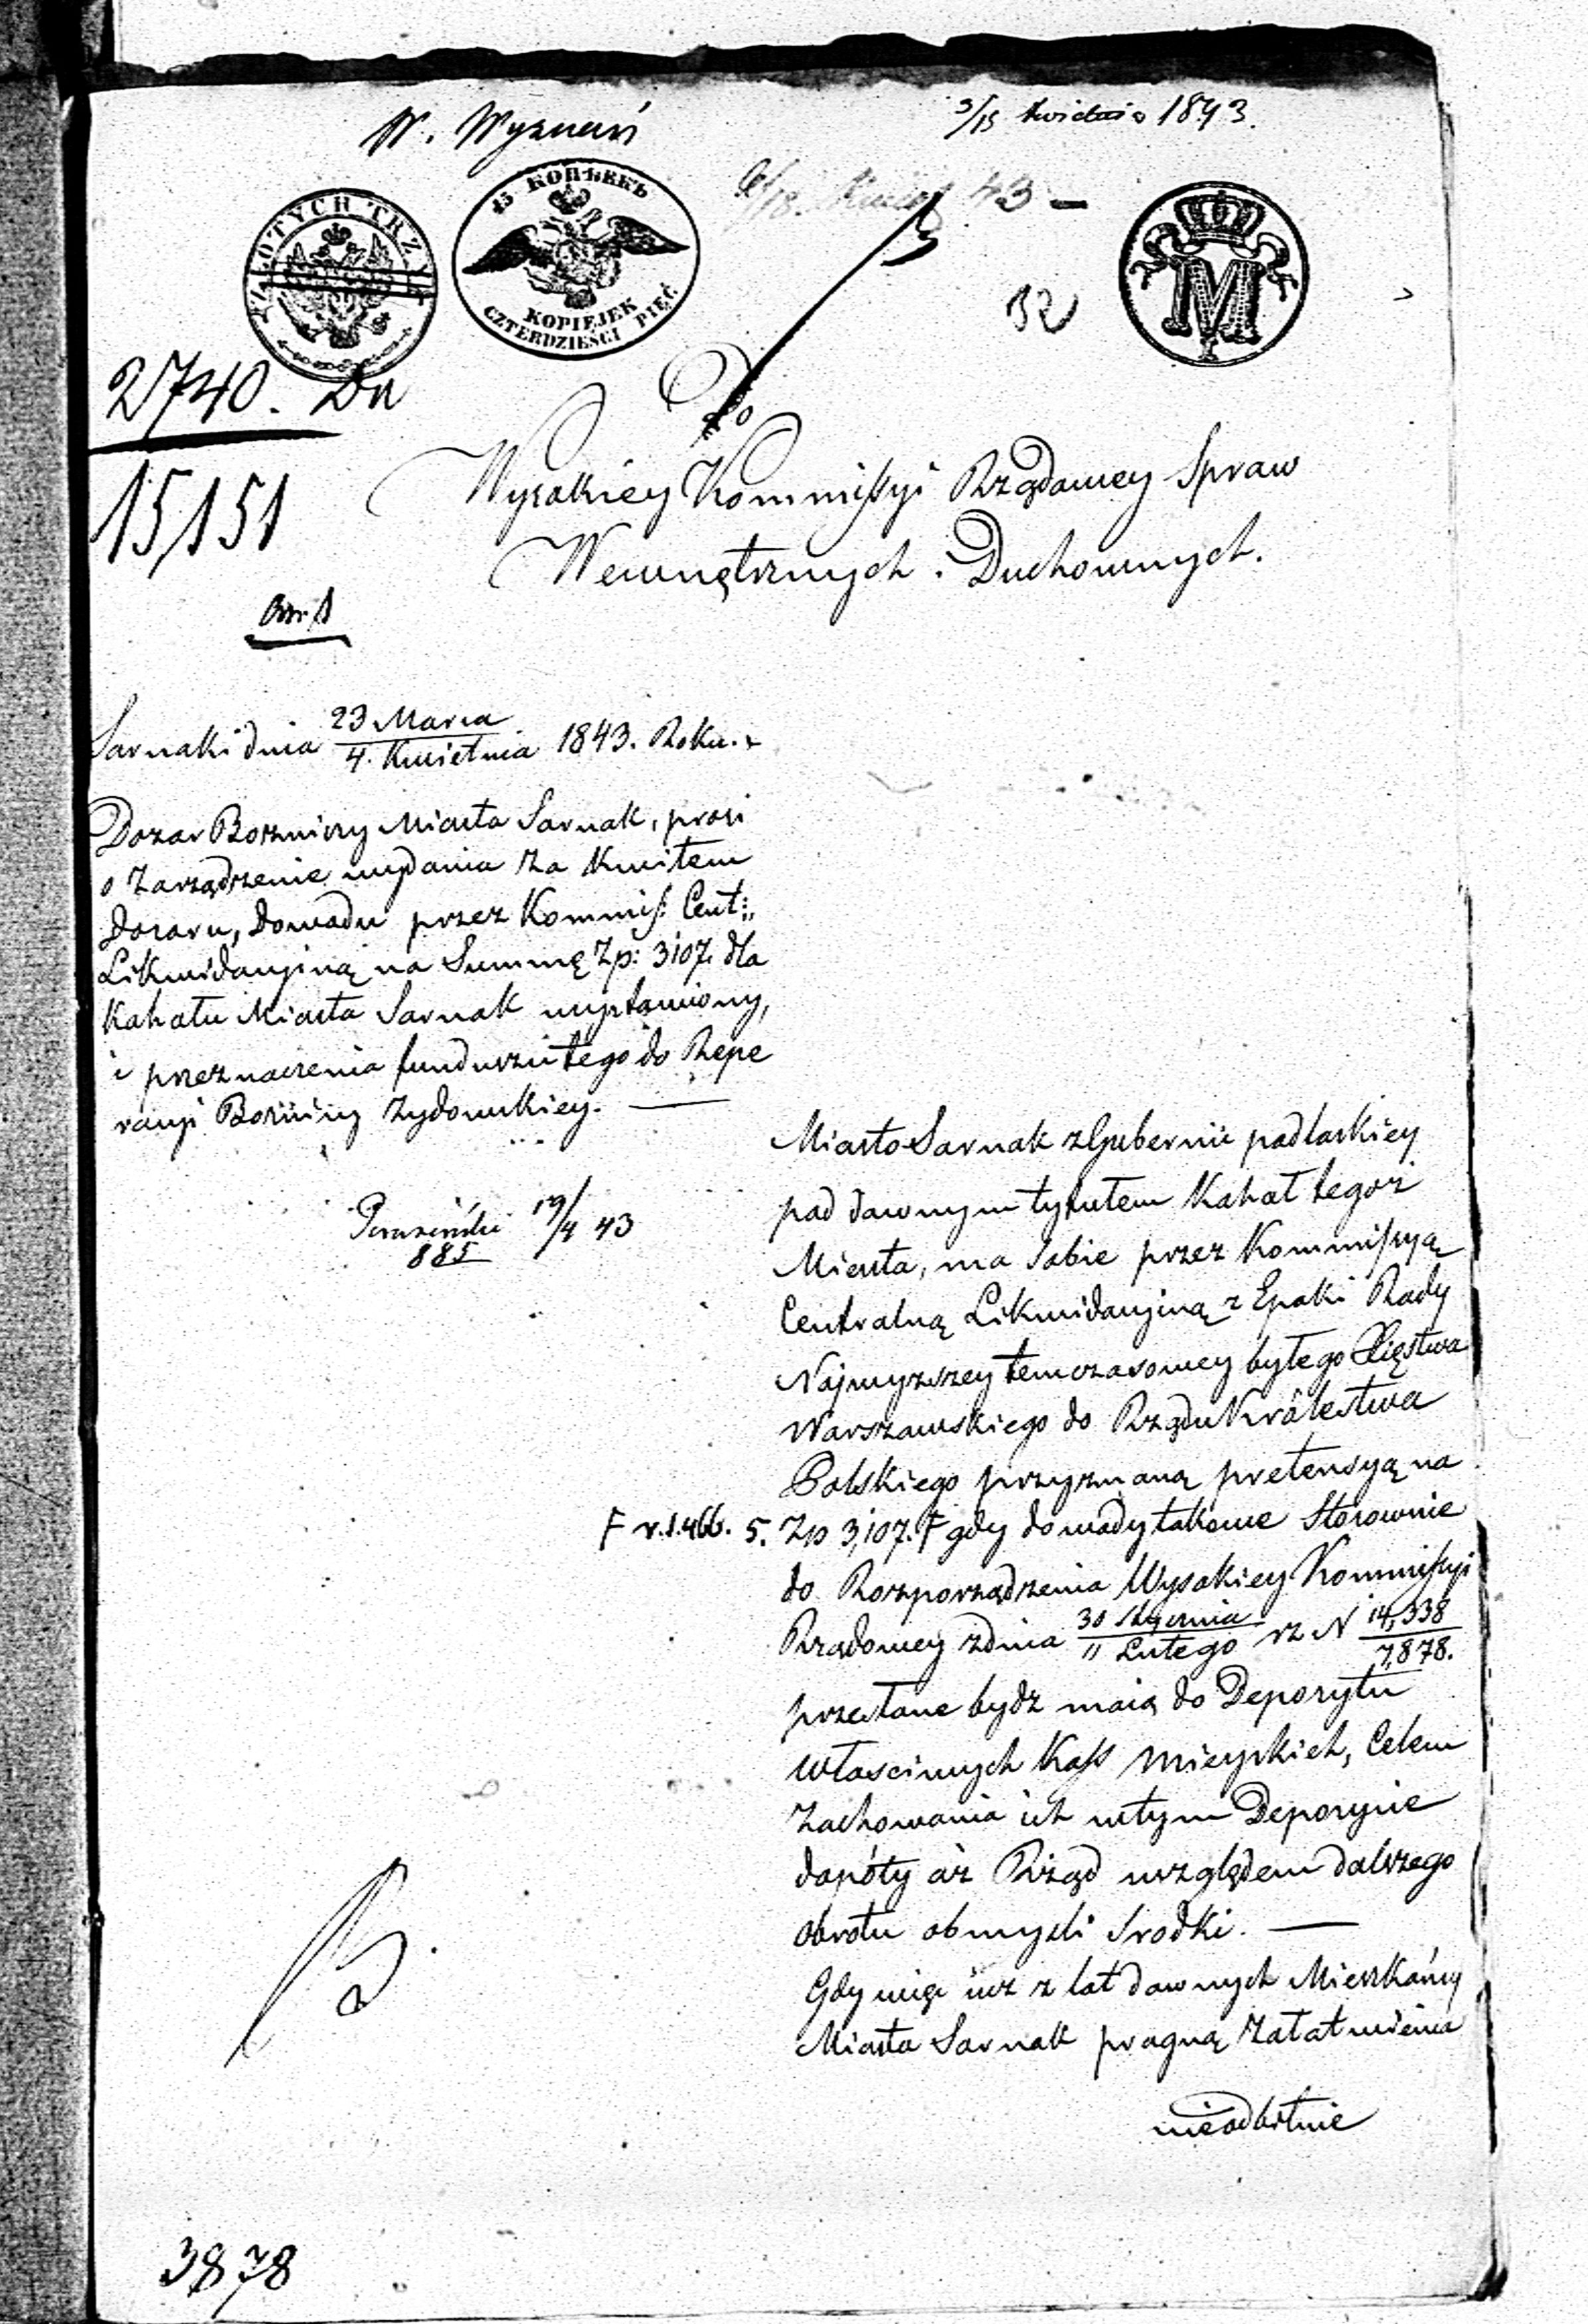 W. Wyznań
3/15 Kwietnia 1843.
6/18 43 -
ZŁOTYCH TRZY
45 КОПѢЕКЪ
KOPIEJEK
CZTERDZIEŚCI PIĘĆ
M
32
2740. Dn
15151
Do
Wysokiey Kommissyi Rządowey Spraw
Wewnętrznych i Duchownych.
Sarnaki dnia 23 Marca / 4. Kwietnia 1843. Roku.
Dozor Bozniczy Miasta Sarnak, prosi
o Zarządzenie wydania za Kwitem
Dozoru, dowodu przez Kommiss: Cent:
Likwidacyiną na Summę Zp: 3107. dla
Kahału Miasta Sarnak wystawiony,
i przeznaczenia funduszu tego do Repe
racyi Bożnicy Zydowskiey. —
19/4 43
885
Miasto Sarnak z Gubernii podlaskiey
pod dawnym tytułem Kahał tegoż
Miasta, ma sobie przez Kommissyą
Centralną Likwidacyiną z Epoki Rady
Naywyzszey temczasowey byłego Xięstwa
Warszawskiego do Rządu Królestwa
Polskiego przyznaną pretensyą na
F v. 1. 466. 5. Zp 3,107. F gdy dowody takowe Stosownie
do Rozporządzenia Wysokiey Kommissyi
Rządowey z dnia 30 Stycznia / 11 Lutego rz N 14,338 / 7,878.
przesłane bydz maią do Depozytu
Właściwych Kass Mieyskich, Celem
Zachowania ich w tym Depozycie
dopóty aż Rząd względem dalszego
obrotu obmysli srodki. —
Gdy więc iuż z lat dawnych Mieszkańcy
Miasta Sarnak pragną Załatwienia
nieodbitnie
3878